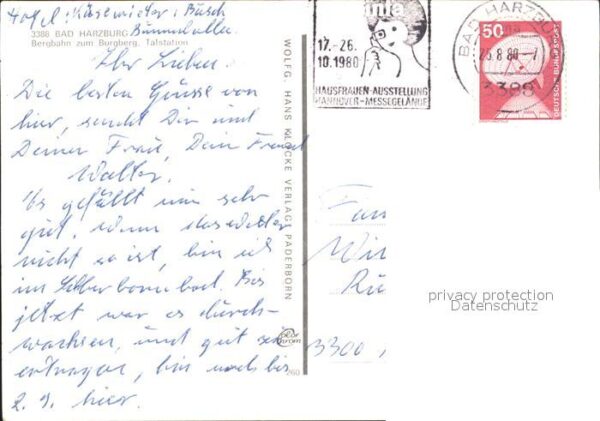 3388 BAD HARZBURG
Bergbahn zum Burgberg, Talstation
Ihr Lieben.
Die besten Grüsse von
hier, sendet Dir und
Deiner Frau, Dein Freund
Walter.
Es gefällt mir sehr
gut, wenn das Wetter
nicht so ist, bin ich
im Silberbornbad. Bis
jetzt war es durch-
wachsen, und gut zu
ertragen, bin noch bis
2. 9. hier.
WOLFG. HANS KLOCKE VERLAG PADERBORN
color
chrom
260
infa
17.-26.
10.1980
HAUSFRAUEN-AUSSTELLUNG
HANNOVER-MESSEGELÄNDE
BAD HARZBURG
8.80
3388
50
DEUTSCHE BUNDESPOST
3300
privacy protection
Datenschutz